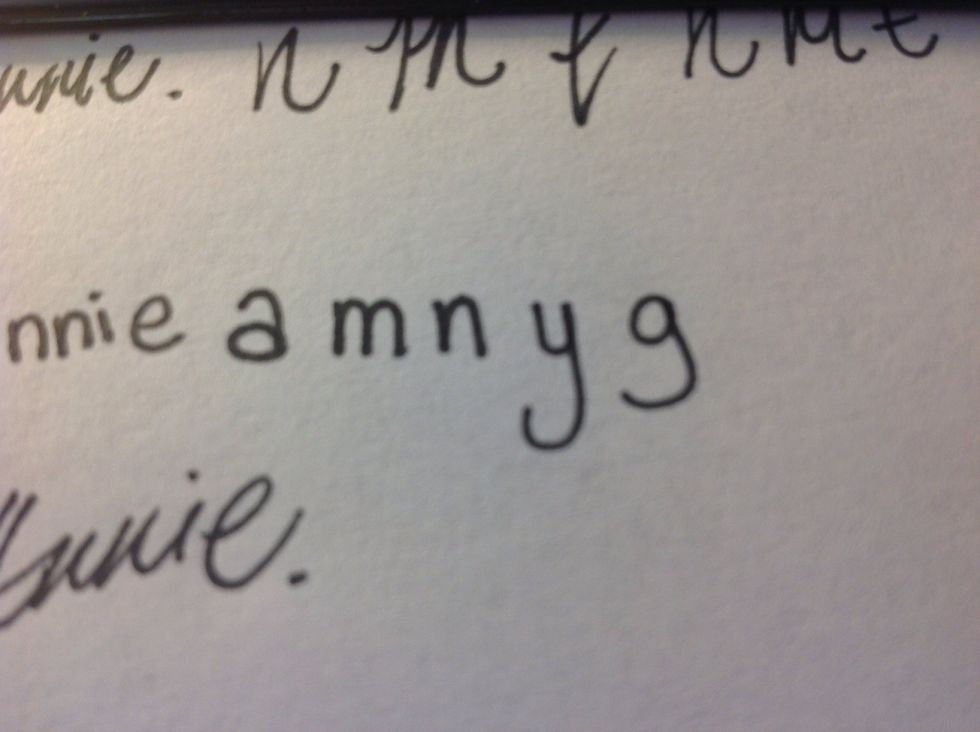 unie. n m f n m t
nnie a m n y g
unnie.